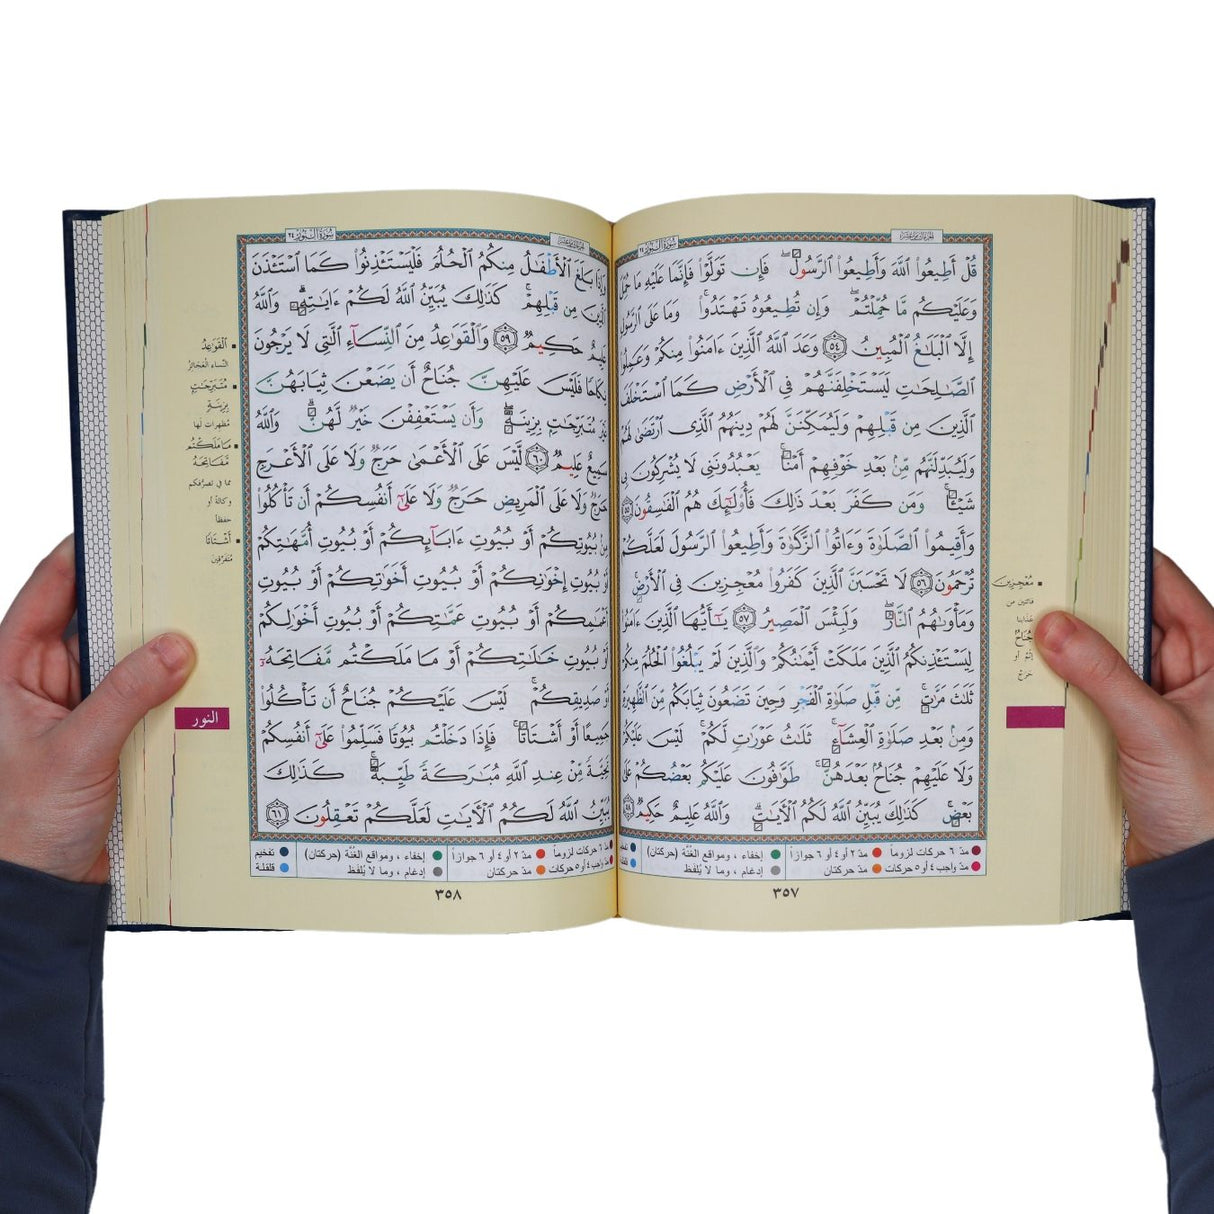 سورة النور ٢٤
قُلْ أَطِيعُوا۟ ٱللَّهَ وَأَطِيعُوا۟ ٱلرَّسُولَ ۖ فَإِن تَوَلَّوْا۟ فَإِنَّمَا عَلَيْهِ مَا حُمِّلَ
وَعَلَيْكُم مَّا حُمِّلْتُمْ ۖ وَإِن تُطِيعُوهُ تَهْتَدُوا۟ ۚ وَمَا عَلَى ٱلرَّسُولِ
إِلَّا ٱلْبَلَٰغُ ٱلْمُبِينُ ٥٤ وَعَدَ ٱللَّهُ ٱلَّذِينَ ءَامَنُوا۟ مِنكُمْ وَعَمِلُوا۟
ٱلصَّٰلِحَٰتِ لَيَسْتَخْلِفَنَّهُمْ فِى ٱلْأَرْضِ كَمَا ٱسْتَخْلَفَ
ٱلَّذِينَ مِن قَبْلِهِمْ وَلَيُمَكِّنَنَّ لَهُمْ دِينَهُمُ ٱلَّذِى ٱرْتَضَىٰ لَهُمْ
وَلَيُبَدِّلَنَّهُم مِّنۢ بَعْدِ خَوْفِهِمْ أَمْنًا ۚ يَعْبُدُونَنِى لَا يُشْرِكُونَ بِى
شَيْـًٔا ۚ وَمَن كَفَرَ بَعْدَ ذَٰلِكَ فَأُو۟لَٰٓئِكَ هُمُ ٱلْفَٰسِقُونَ ٥٥
وَأَقِيمُوا۟ ٱلصَّلَوٰةَ وَءَاتُوا۟ ٱلزَّكَوٰةَ وَأَطِيعُوا۟ ٱلرَّسُولَ لَعَلَّكُمْ
تُرْحَمُونَ ٥٦ لَا تَحْسَبَنَّ ٱلَّذِينَ كَفَرُوا۟ مُعْجِزِينَ فِى ٱلْأَرْضِ ۚ
وَمَأْوَىٰهُمُ ٱلنَّارُ ۖ وَلَبِئْسَ ٱلْمَصِيرُ ٥٧ يَٰٓأَيُّهَا ٱلَّذِينَ ءَامَنُوا۟
لِيَسْتَـْٔذِنكُمُ ٱلَّذِينَ مَلَكَتْ أَيْمَٰنُكُمْ وَٱلَّذِينَ لَمْ يَبْلُغُوا۟ ٱلْحُلُمَ مِنكُمْ
ثَلَٰثَ مَرَّٰتٍ ۚ مِّن قَبْلِ صَلَوٰةِ ٱلْفَجْرِ وَحِينَ تَضَعُونَ ثِيَابَكُم مِّنَ ٱلظَّهِيرَةِ
وَمِنۢ بَعْدِ صَلَوٰةِ ٱلْعِشَآءِ ۚ ثَلَٰثُ عَوْرَٰتٍ لَّكُمْ ۚ لَيْسَ عَلَيْكُمْ
وَلَا عَلَيْهِمْ جُنَاحٌۢ بَعْدَهُنَّ ۚ طَوَّٰفُونَ عَلَيْكُم بَعْضُكُمْ عَلَىٰ
بَعْضٍ ۚ كَذَٰلِكَ يُبَيِّنُ ٱللَّهُ لَكُمُ ٱلْءَايَٰتِ ۗ وَٱللَّهُ عَلِيمٌ حَكِيمٌ ٥٨
مُعْجِزِينَ
فائتين من
عذابنا
جُنَاحٌ
إثم أو
حرج
مد ٦ حركات لزوماً مد ٢ أو ٤ أو ٦ جوازاً إخفاء ، ومواقع الغُنَّة (حركتان) تفخيم
مد واجب ٤ أو ٥ حركات مد حركتان إدغام ، وما لا يُلفظ
٣٥٧
سورة النور ٢٤
وَإِذَا بَلَغَ ٱلْأَطْفَٰلُ مِنكُمُ ٱلْحُلُمَ فَلْيَسْتَـْٔذِنُوا۟ كَمَا ٱسْتَـْٔذَنَ
ٱلَّذِينَ مِن قَبْلِهِمْ ۚ كَذَٰلِكَ يُبَيِّنُ ٱللَّهُ لَكُمْ ءَايَٰتِهِۦ ۗ وَٱللَّهُ
عَلِيمٌ حَكِيمٌ ٥٩ وَٱلْقَوَٰعِدُ مِنَ ٱلنِّسَآءِ ٱلَّٰتِى لَا يَرْجُونَ
نِكَاحًا فَلَيْسَ عَلَيْهِنَّ جُنَاحٌ أَن يَضَعْنَ ثِيَابَهُنَّ
غَيْرَ مُتَبَرِّجَٰتٍۭ بِزِينَةٍ ۖ وَأَن يَسْتَعْفِفْنَ خَيْرٌ لَّهُنَّ ۗ وَٱللَّهُ
سَمِيعٌ عَلِيمٌ ٦٠ لَّيْسَ عَلَى ٱلْأَعْمَىٰ حَرَجٌ وَلَا عَلَى ٱلْأَعْرَجِ
حَرَجٌ وَلَا عَلَى ٱلْمَرِيضِ حَرَجٌ وَلَا عَلَىٰٓ أَنفُسِكُمْ أَن تَأْكُلُوا۟
مِنۢ بُيُوتِكُمْ أَوْ بُيُوتِ ءَابَآئِكُمْ أَوْ بُيُوتِ أُمَّهَٰتِكُمْ
أَوْ بُيُوتِ إِخْوَٰنِكُمْ أَوْ بُيُوتِ أَخَوَٰتِكُمْ أَوْ بُيُوتِ
أَعْمَٰمِكُمْ أَوْ بُيُوتِ عَمَّٰتِكُمْ أَوْ بُيُوتِ أَخْوَٰلِكُمْ
أَوْ بُيُوتِ خَٰلَٰتِكُمْ أَوْ مَا مَلَكْتُم مَّفَاتِحَهُۥٓ
أَوْ صَدِيقِكُمْ ۚ لَيْسَ عَلَيْكُمْ جُنَاحٌ أَن تَأْكُلُوا۟
جَمِيعًا أَوْ أَشْتَاتًا ۚ فَإِذَا دَخَلْتُم بُيُوتًا فَسَلِّمُوا۟ عَلَىٰٓ أَنفُسِكُمْ
تَحِيَّةً مِّنْ عِندِ ٱللَّهِ مُبَٰرَكَةً طَيِّبَةً ۚ كَذَٰلِكَ
يُبَيِّنُ ٱللَّهُ لَكُمُ ٱلْءَايَٰتِ لَعَلَّكُمْ تَعْقِلُونَ ٦١
الْقَوَاعِدُ
النساء العجائز
مُتَبَرِّجَاتٍ
بِزِينَةٍ
مظهرات لها
مَا مَلَكْتُم
مَّفَاتِحَهُ
مما في تصرفكم
وكالة أو
حفظاً
أَشْتَاتًا
متفرقين
النور
مد ٦ حركات لزوماً مد ٢ أو ٤ أو ٦ جوازاً إخفاء ، ومواقع الغُنَّة (حركتان) تفخيم
مد واجب ٤ أو ٥ حركات مد حركتان إدغام ، وما لا يُلفظ قلقلة
٣٥٨